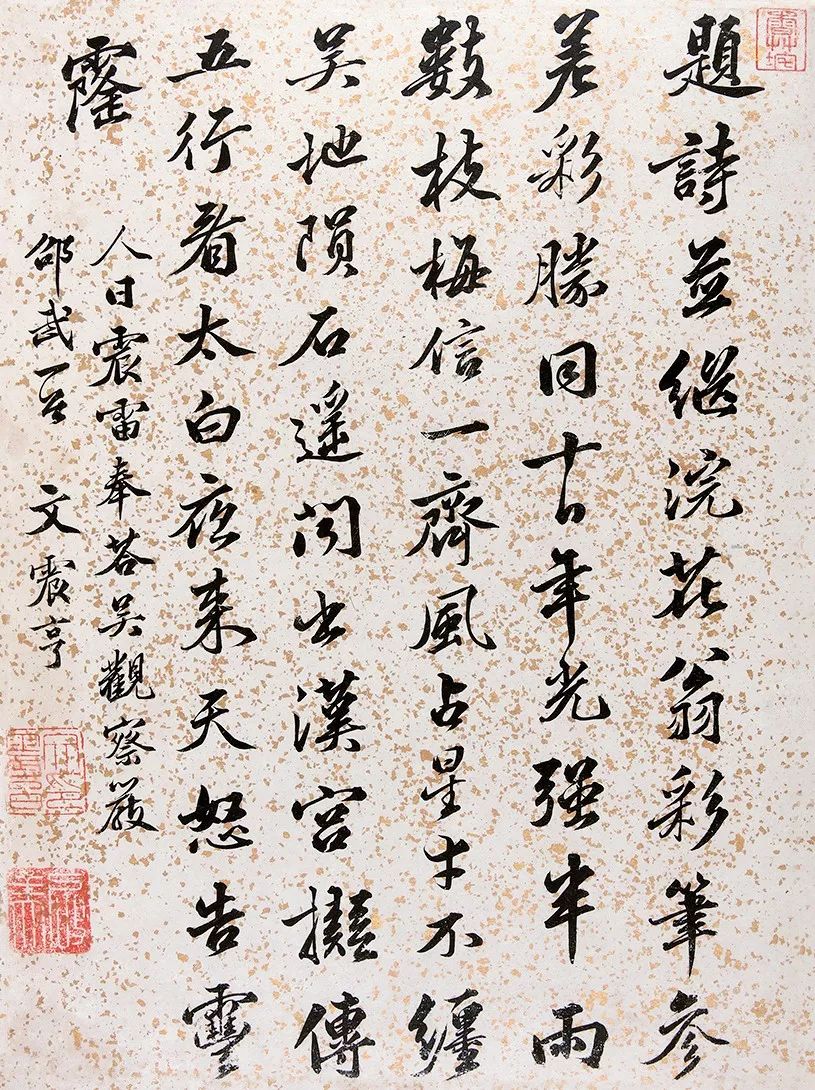 題詩並繼浣花翁彩筆參
差彩勝同十日年光强半雨
數枝梅信一齊風占星才不纏
吳地隕石遥聞出漢宮擬傳
五行看太白夜來天怒告靊
霳
人日震雷奉荅吳觀察巖
邵武一 文震亨